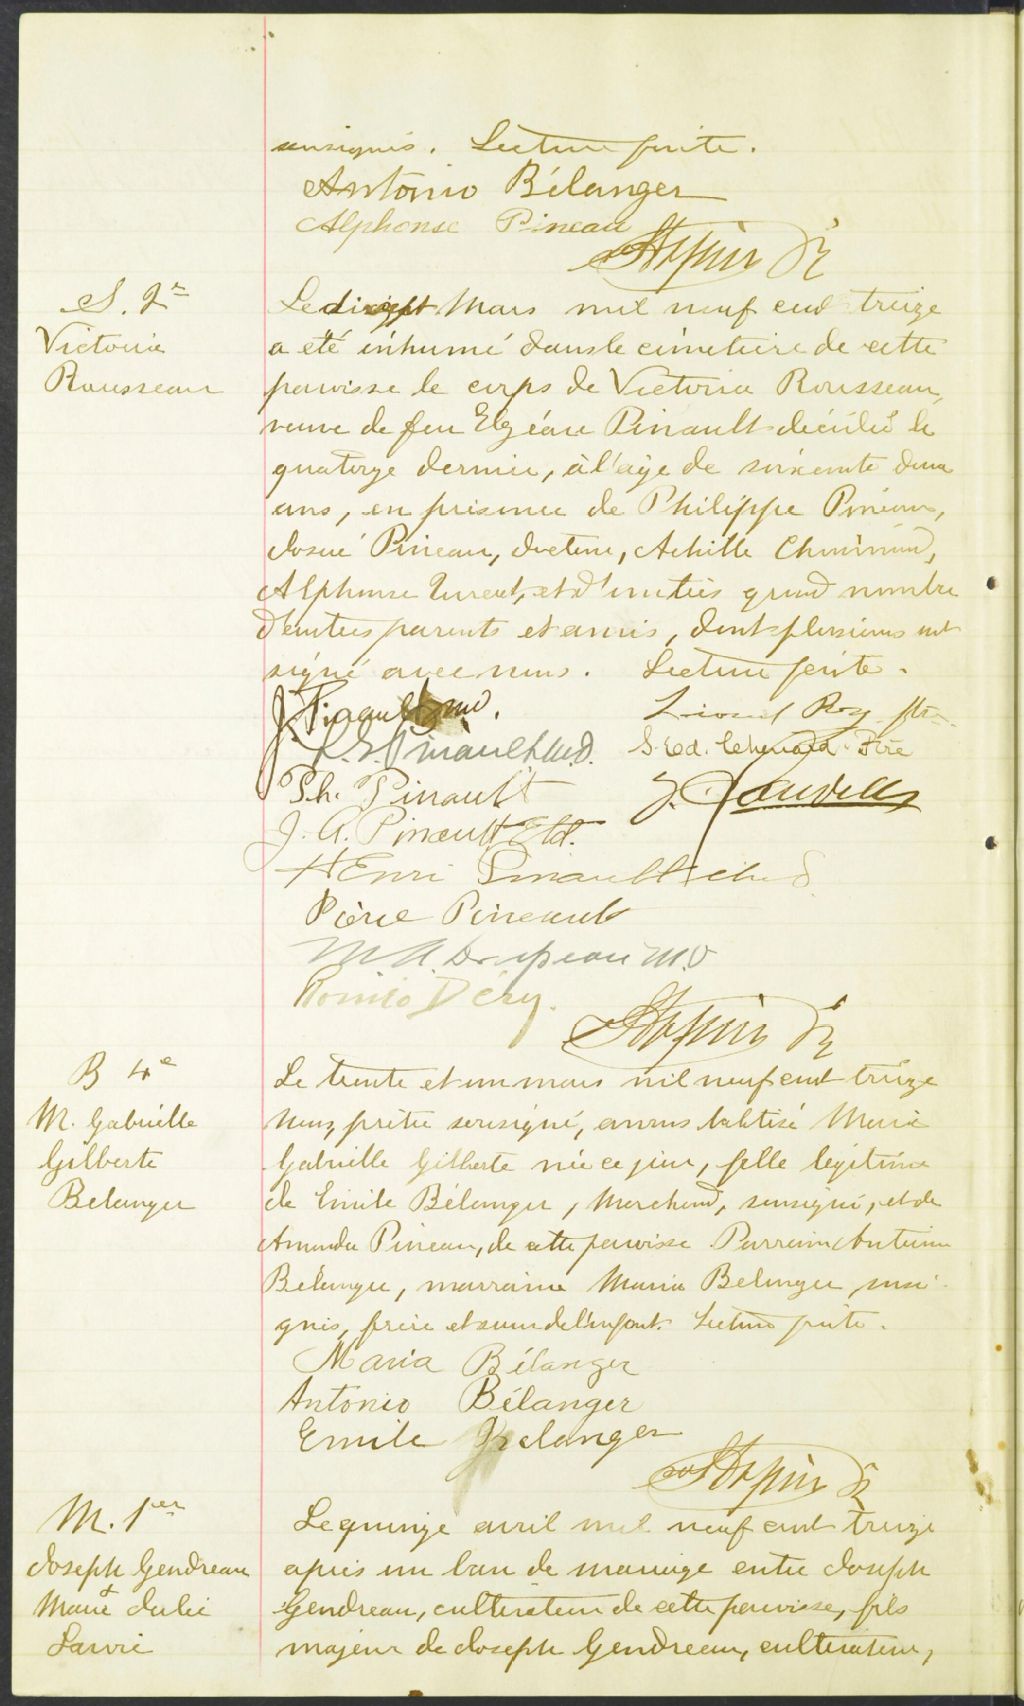 sousignés. Lecture faite.
Antonio Bélanger
Alphonse Pineau
S. 2e
Victoria
Rousseau
Le dixsept Mars mil neuf cent treize
a été inhumé dans le cimetière de cette
paroisse le corps de Victoria Rousseau,
veuve de feu Elzéare Pinault décédée le
quatorze dernier, à l'âge de soixante deux
ans, en présence de Philippe Pineau,
Josué Pineau, docteur, Achille Chouinard,
Alphonse et d'un très grand nombre
d'autres parents et amis, dont plusieurs ont
signé avec nous. Lecture faite.
J. Pinault md.
Lionel Roy ptre
Pinault M.D.
S. Ed. Chenard Ptre
Ph. Pinault
J. A. Pinault Etd.
Henri Pinault
Pierre Pineault
M A. Drapeau M.D
Roméo Déry.
B 4e
M. Gabrielle
Gilberte
Belanger
Le trente et un mars mil neuf cent treize
nous, prêtre sousigné, avons batisé Marie
Gabrielle Gilberte née ce jour, fille légitime
de Emile Bélanger, Marchand, sousigné, et de
Amanda Pineau, de cette paroisse Parrain Antonio
Bélanger, marraine Maria Belanger, sousi-
gnés, frère et soeur de l'enfant. Lecture faite.
Maria Bélanger
Antonio Bélanger
Emile Belanger
M. 1er
Joseph Gendreau
+
Marie Julie
Lavoie
Le quinze avril mil neuf cent treize
après un ban de mariage entre Joseph
Gendreau, cultivateur de cette paroisse, fils
majeur de Joseph Gendreau, cultivateur,